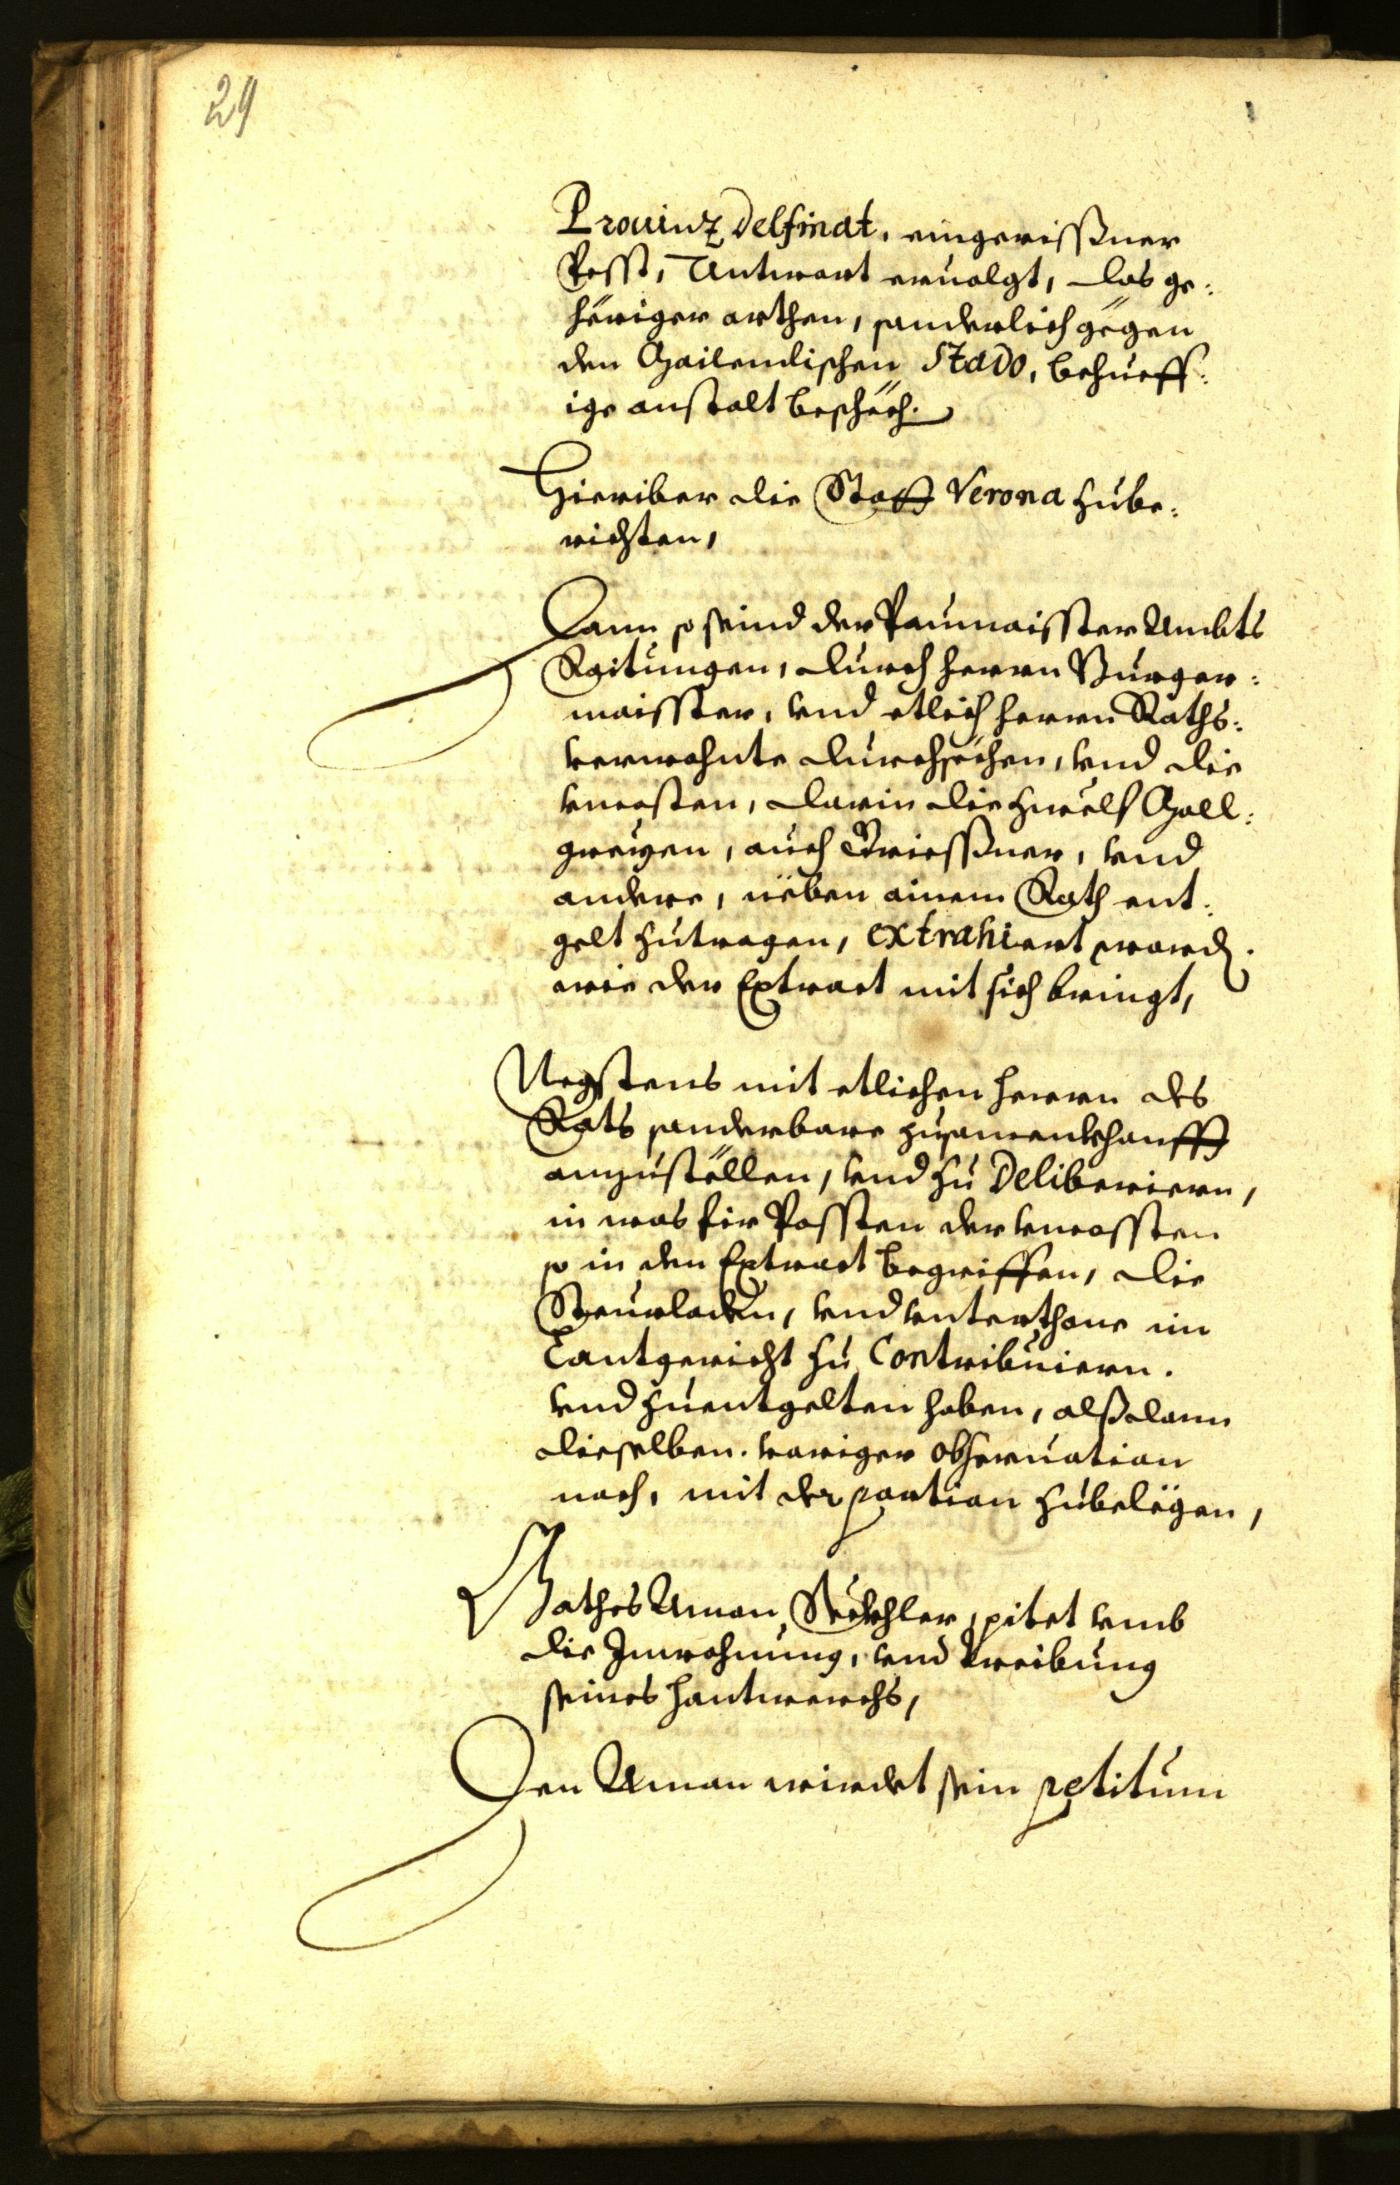 29
Prouinz Delfinat, eingerißner
Pesst, Antwort eruolgt, das ge:
höriger orthen, sonderlich gegen
den Mailendischen Stado, behueff:
ige anstalt beschech.
Hieriber die Statt Verona zube:
richten,
Dann so seind der Paumaisster Ambts
Raitungen, durch herrn Burger:
maisster, vnd etlich herrn Raths:
verwohnte durchsechen, vnd die
vncosten, darin die zwelf Moll:
greyen, auch Griessner, vnd
andere, neben ainem Rath ent:
gelt zutragen, extrahiert word.
wie der Extract mit sich bringt,
Negstens mit etlichen herrn des
Rats sonderbare zusamenkhonfft
anzustellen, vnd zu Deliberiern,
in was fir Possten der vncossten
so in den Extract begriffen, die
Steurladen, vnd vnterthone im
Lantgericht zu Contribuiern.
vnd zuentgelten haben, alßdann
dieselben. voriger obseruation
nach, mit der portion zubelegen,
Mathes Aman, pitet vmb
die Inwohnung, vnd treibung
seines hantwerchs,
Den Aman wirdet sein petitum